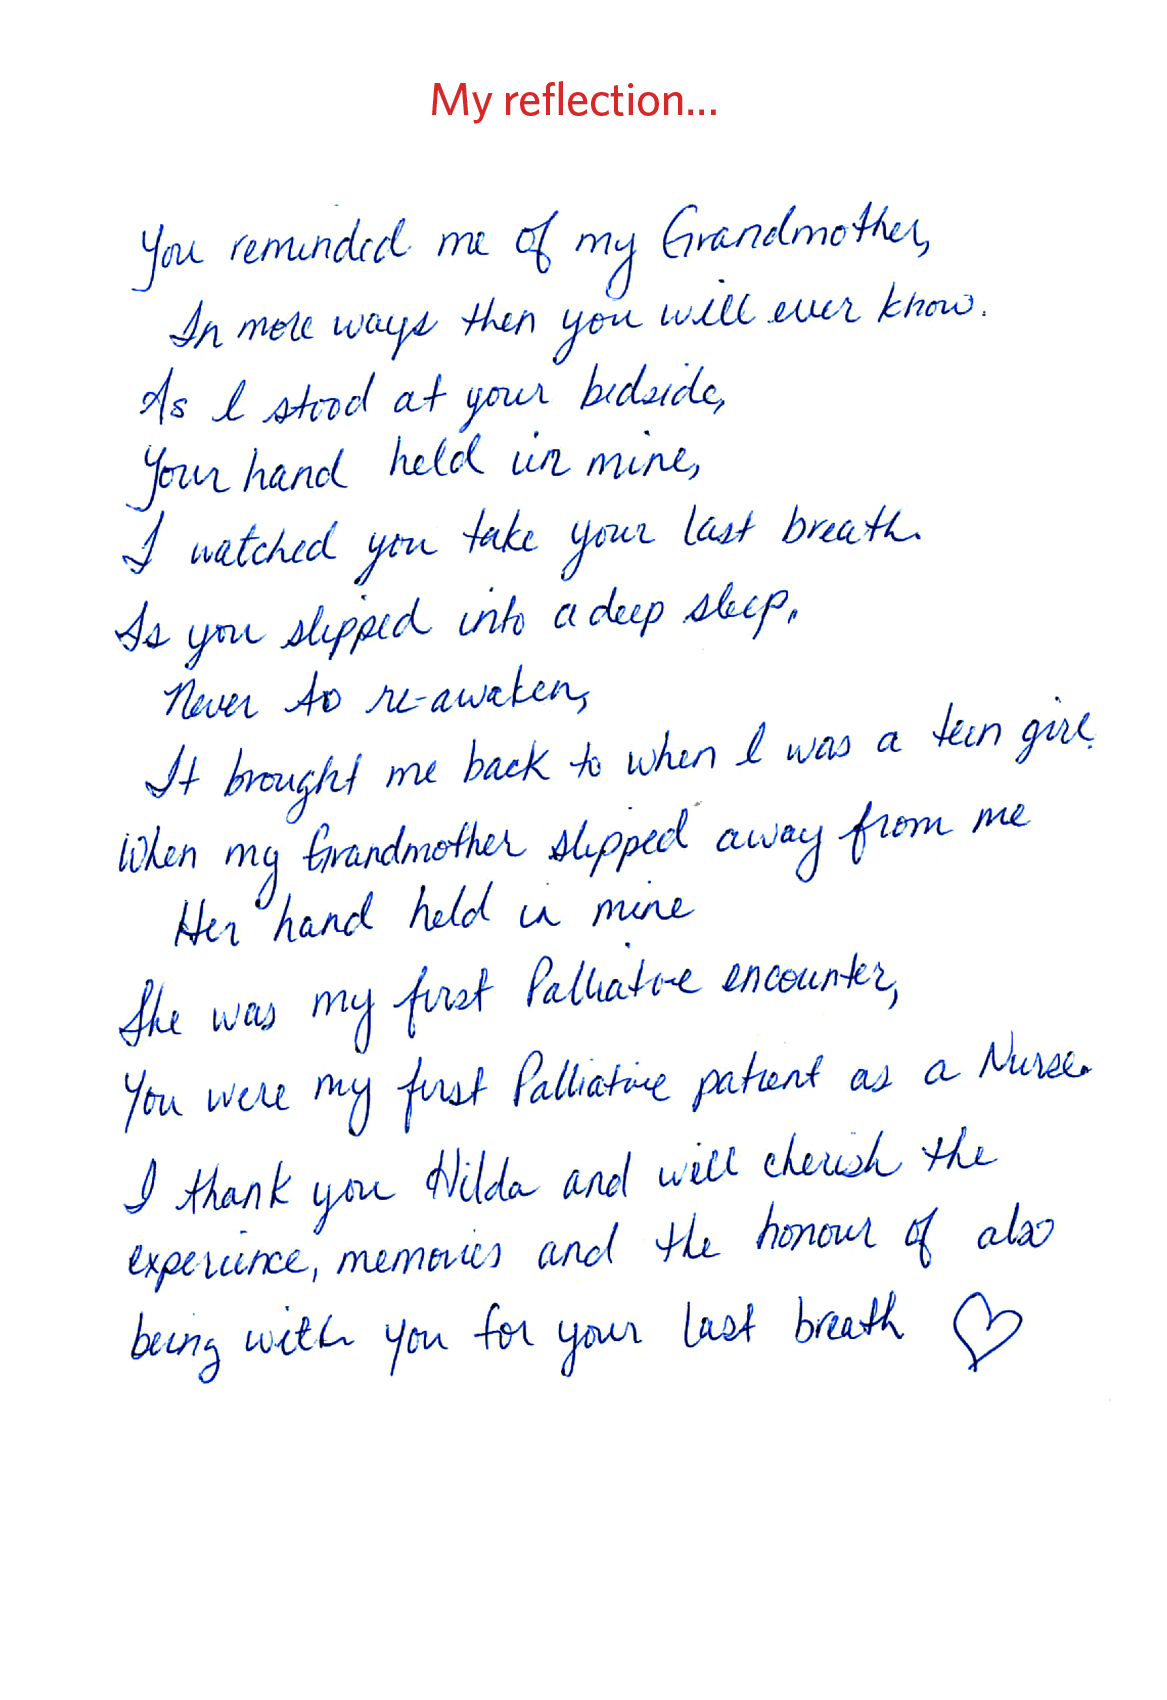 My reflection...
You reminded me of my Grandmother,
In more ways then you will ever know.
As I stood at your bedside,
Your hand held in mine,
I watched you take your last breath.
As you slipped into a deep sleep,
Never to re-awaken,
It brought me back to when I was a teen girl.
When my Grandmother slipped away from me
Her hand held in mine
She was my first Palliative encounter,
You were my first Palliative patient as a Nurse.
I thank you Hilda and will cherish the
experience, memories and the honour of also
being with you for your last breath